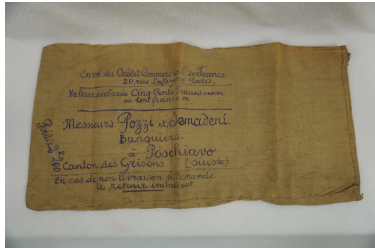 Envoi du Crédit Commercial de France
20 rue Lafayette Paris.
Valeur déclarée Cinq Cents francs
ou cent francs or
Messieurs Pozzi & Semadeni.
Banquiers
à Poschiavo
Canton des Grisons (Suisse)
En cas de non livraison par
le retour immédiat